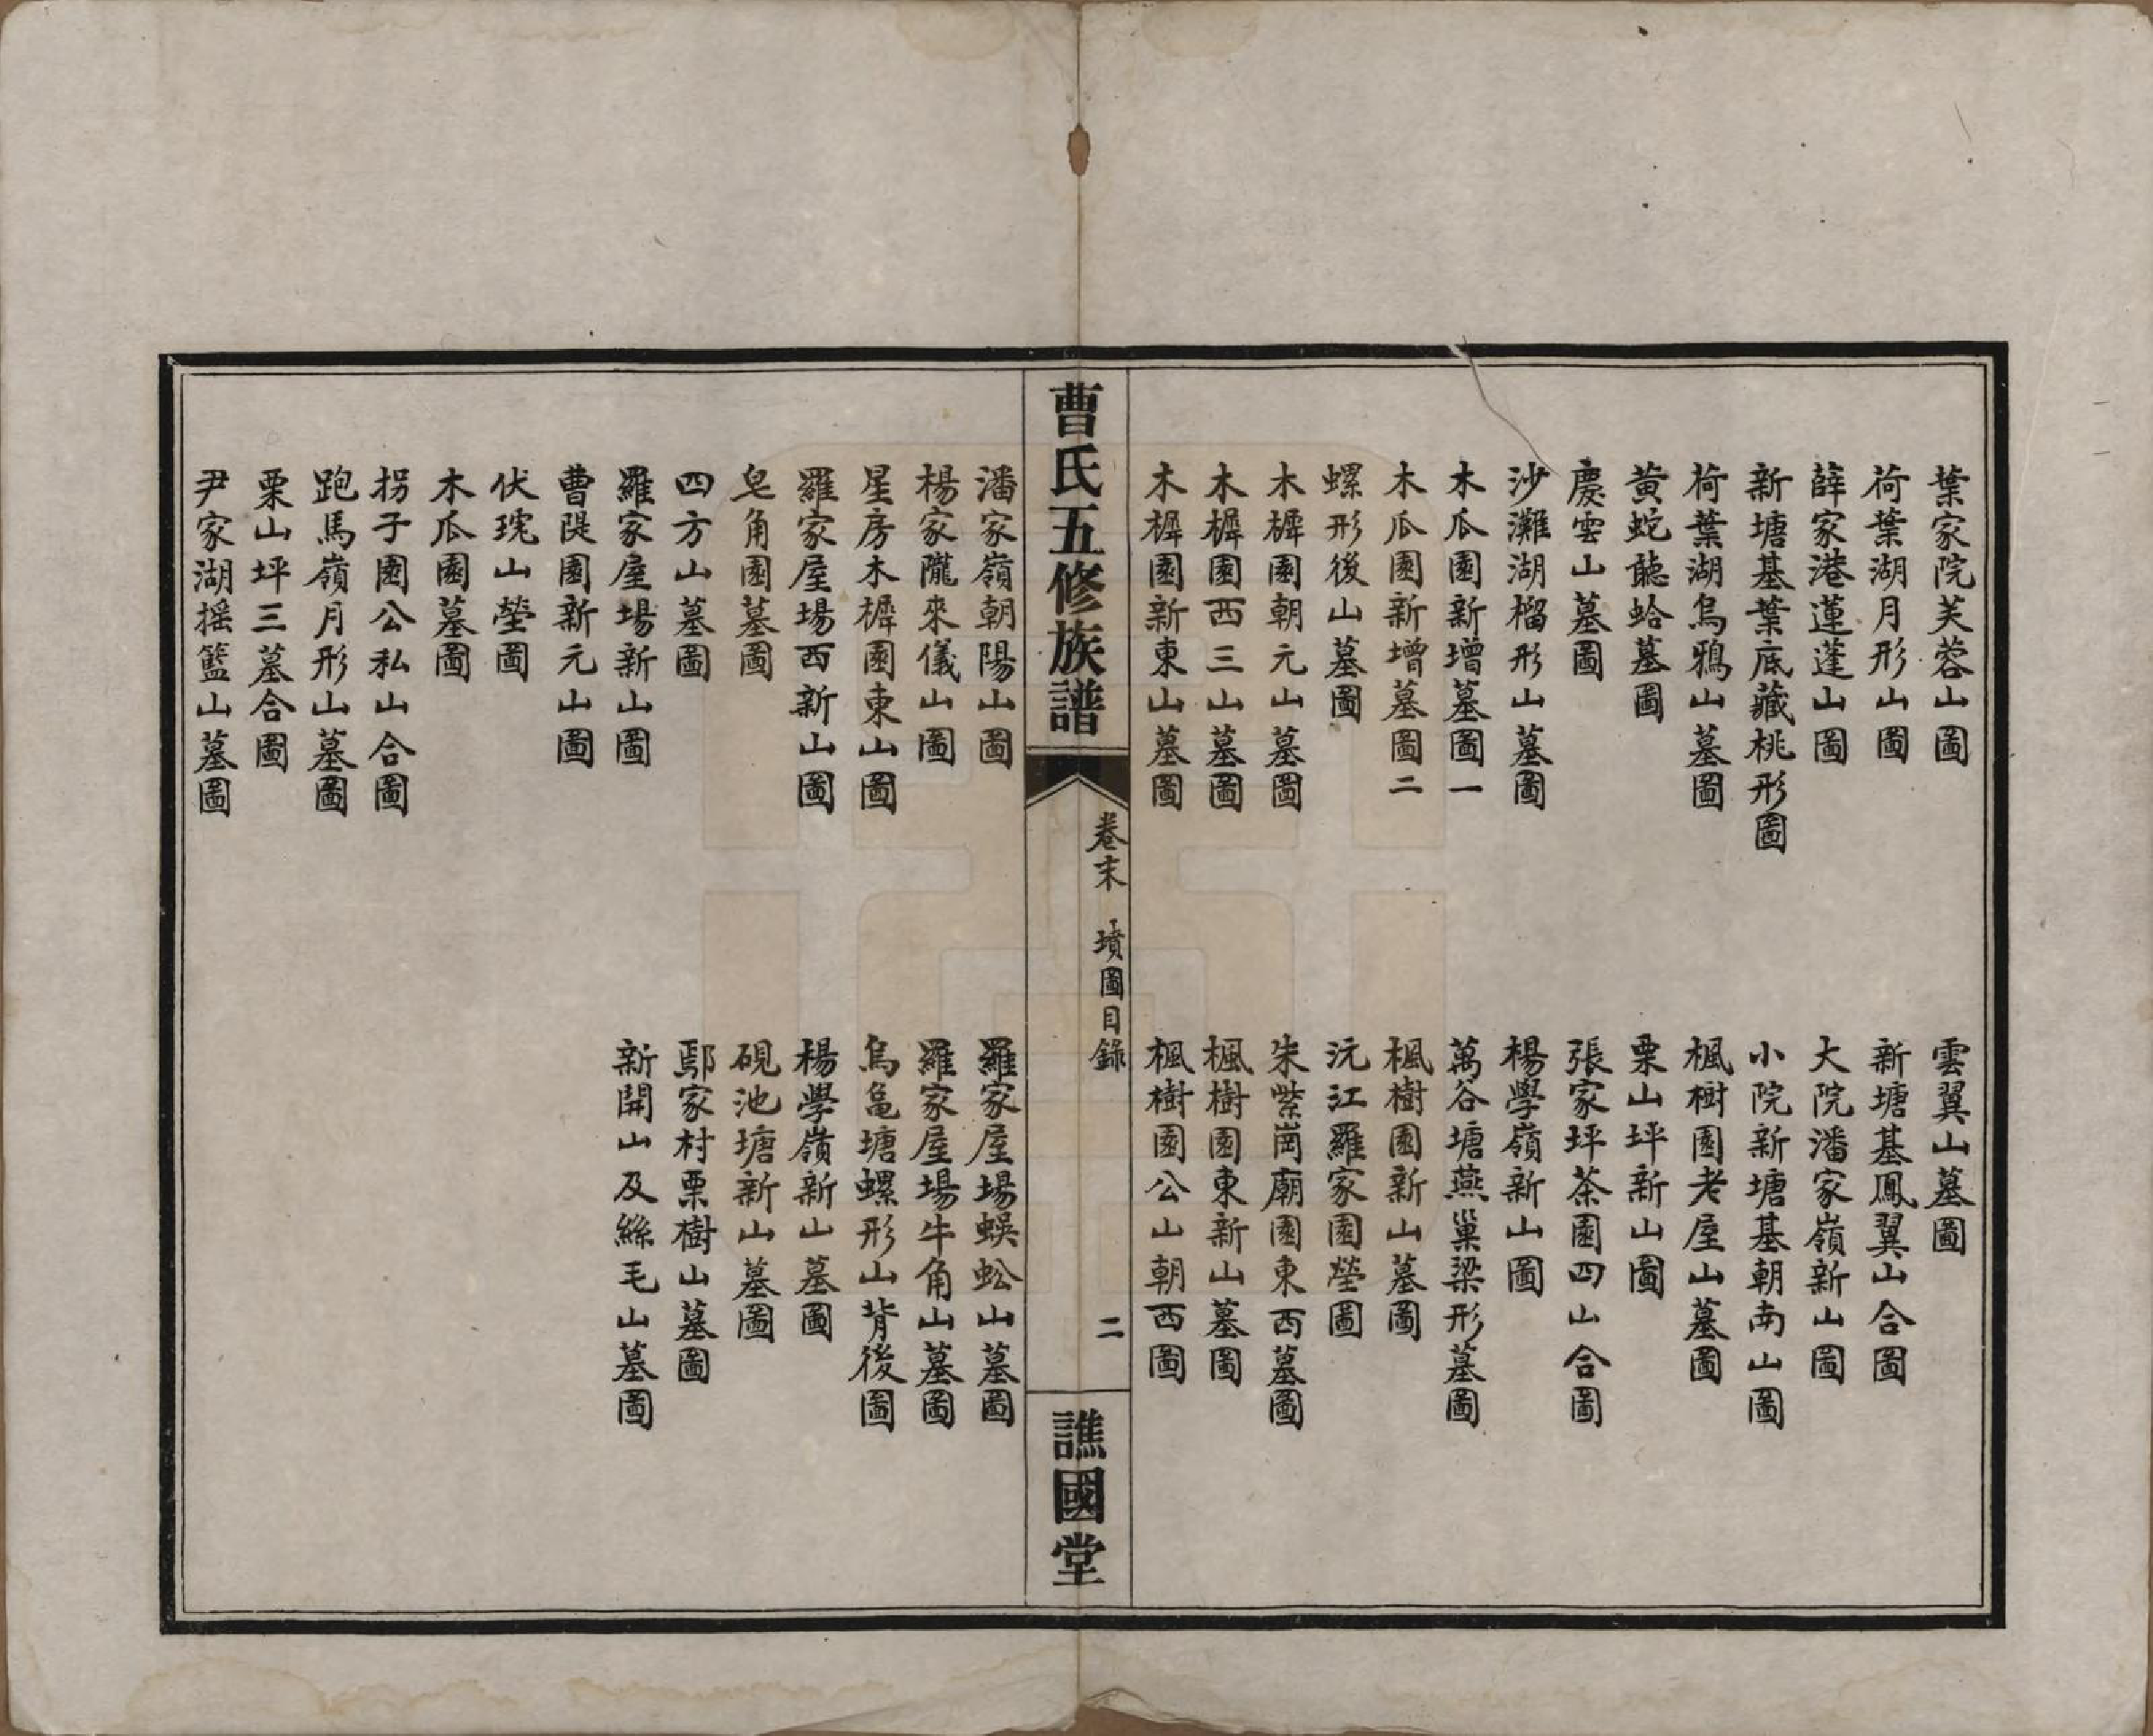 葉家院芙蓉山圖
荷葉湖月形山圖
薛家港蓮蓬山圖
新塘基葉底藏桃形圖
荷葉湖烏鴉山墓圖
黃蛇聽蛤墓圖
慶雲山墓圖
沙灘湖榴形山墓圖
木瓜園新增墓圖一
木瓜園新增墓圖二
螺形後山墓圖
木樨園朝元山墓圖
木樨園西三山墓圖
木樨園新東山墓圖
雲翼山墓圖
新塘基鳳翼山合圖
大院潘家嶺新山圖
小院新塘基朝南山圖
楓樹園老屋山墓圖
栗山坪新山圖
張家坪茶園四山合圖
楊學嶺新山圖
萬谷塘燕巢梁形墓圖
楓樹園新山墓圖
沅江羅家園塋圖
朱紫崗廟園東西墓圖
楓樹園東新山墓圖
楓樹園公山朝西圖
曹氏五修族譜
卷末 墳圖目錄
二
譙國堂
潘家嶺朝陽山圖
楊家隴來儀山圖
星房木樨園東山圖
羅家屋場西新山圖
皂角園墓圖
四方山墓圖
羅家屋場新山圖
曹隄園新元山圖
伏琓山塋圖
木瓜園墓圖
拐子園公私山合圖
跑馬嶺月形山墓圖
栗山坪三墓合圖
尹家湖摇籃山墓圖
羅家屋場蜈蚣山墓圖
羅家屋場牛角山墓圖
烏龜塘螺形山背後圖
楊學嶺新山墓圖
硯池塘新山墓圖
鄢家村栗樹山墓圖
新開山及絲毛山墓圖